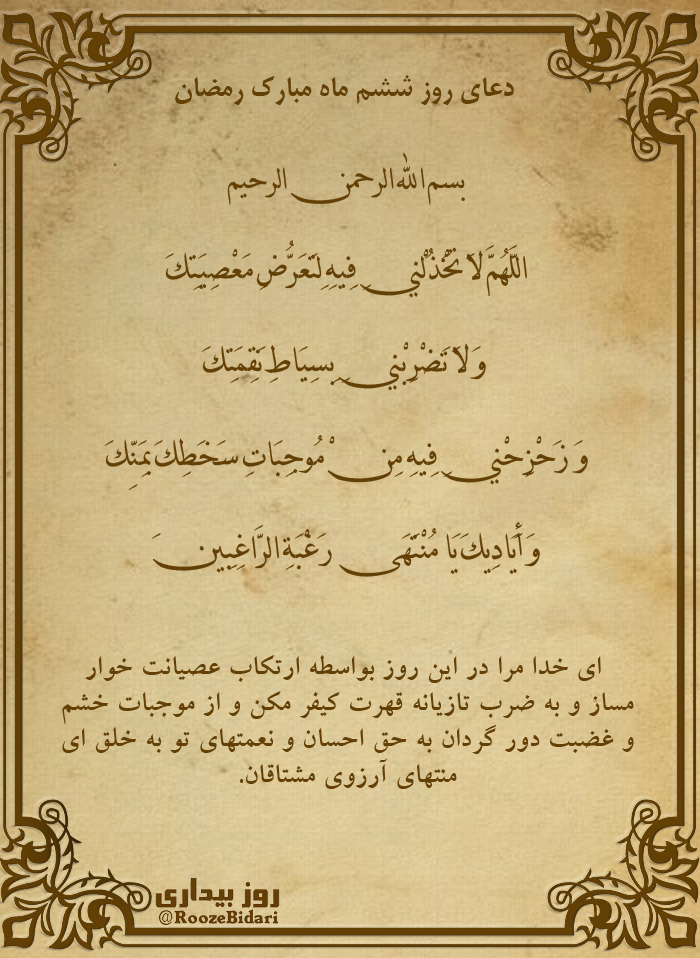 دعای روز ششم ماه مبارک رمضان
بسم الله الرحمن الرحیم
اللَّهُمَّ لاَ تَخْذُلْنِي فِيهِ لِتَعَرُّضِ مَعْصِيَتِكَ
وَ لاَ تَضْرِبْنِي بِسِيَاطِ نِقْمَتِكَ
وَ زَحْزِحْنِي فِيهِ مِنْ مُوجِبَاتِ سَخَطِكَ بِمَنِّكَ
وَ أَيَادِيكَ يَا مُنْتَهَى رَغْبَةِ الرَّاغِبِينَ
ای خدا مرا در این روز بواسطه ارتکاب عصیانت خوار
مساز و به ضرب تازیانه قهرت کیفر مکن و از موجبات خشم
و غضبت دور گردان به حق احسان و نعمتهای تو به خلق ای
منتهای آرزوی مشتاقان.
روز بیداری
@RoozeBidari